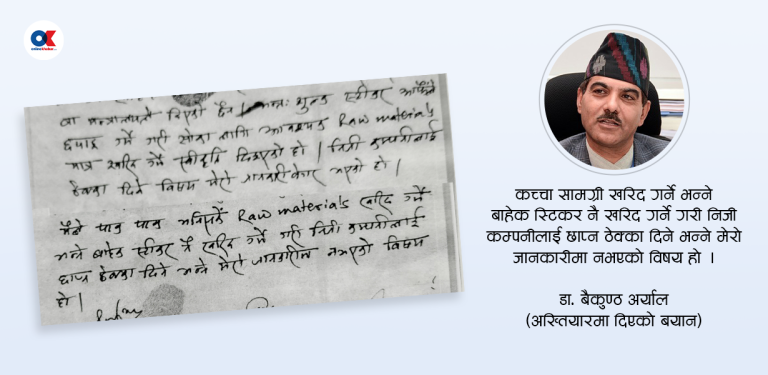 OK
वा मन्त्रालयले दिएको हैन । अन्तः शुल्क स्टीकर आफैंले
छपाइ गर्ने गरी सोका लागि आवश्यक Raw material's
मात्र खरिद गर्ने स्वीकृति दिइएको हो । निजी कम्पनीलाई
ठेक्का दिने विषय मेरो जानकारीबाहिर भएको हो ।
मैले पटक पटक Raw material's खरिद गर्ने
भन्ने बाहेक स्टीकर नै खरिद गर्ने गरी निजी कम्पनीलाई
छाप्न ठेक्का दिने भन्ने मेरो जानकारीमा नभएको विषय
हो ।
कच्चा सामग्री खरिद गर्ने भन्ने
बाहेक स्टिकर नै खरिद गर्ने गरी निजी
कम्पनीलाई छाप्न ठेक्का दिने भन्ने मेरो
जानकारीमा नभएको विषय हो ।
डा. बैकुण्ठ अर्याल
(अख्तियारमा दिएको बयान)